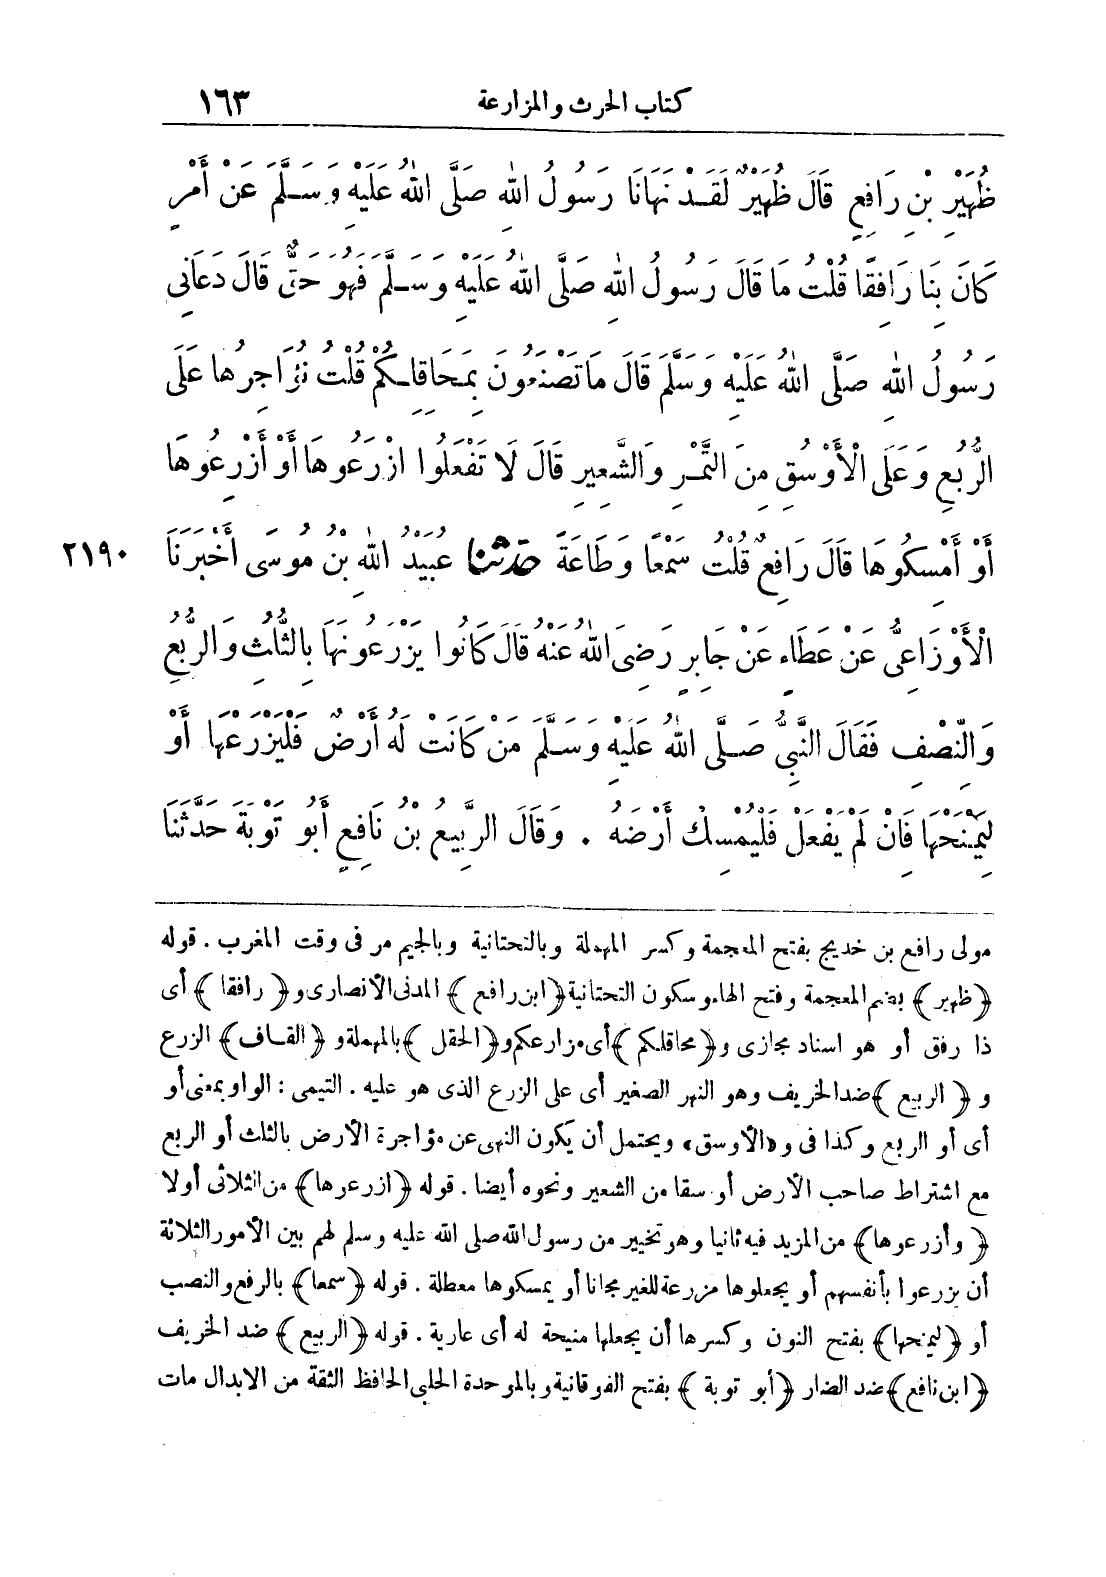 كتاب الحرث والمزارعة ١٦٣
ظُهَيْرِ بْنِ رَافِعٍ قَالَ ظُهَيْرٌ لَقَدْ نَهَانَا رَسُولُ اللهِ صَلَّى اللهُ عَلَيْهِ وَسَلَّمَ عَنْ أَمْرٍ
كَانَ بِنَا رَافِقًا قُلْتُ مَا قَالَ رَسُولُ اللهِ صَلَّى اللهُ عَلَيْهِ وَسَلَّمَ فَهُوَ حَقٌّ قَالَ دَعَانِي
رَسُولُ اللهِ صَلَّى اللهُ عَلَيْهِ وَسَلَّمَ قَالَ مَا تَصْنَعُونَ بِمَحَاقِلِكُمْ قُلْتُ نُؤَاجِرُهَا عَلَى
الرُّبُعِ وَعَلَى الْأَوْسُقِ مِنَ التَّمْرِ وَالشَّعِيرِ قَالَ لَا تَفْعَلُوا ازْرَعُوهَا أَوْ أَزْرِعُوهَا
أَوْ أَمْسِكُوهَا قَالَ رَافِعٌ قُلْتُ سَمْعًا وَطَاعَةً حَدَّثَنَا عُبَيْدُ اللهِ بْنُ مُوسَى أَخْبَرَنَا ٢١٩٠
الْأَوْزَاعِيُّ عَنْ عَطَاءٍ عَنْ جَابِرٍ رَضِيَ اللهُ عَنْهُ قَالَ كَانُوا يَزْرَعُونَهَا بِالثُّلُثِ وَالرُّبُعِ
وَالنِّصْفِ فَقَالَ النَّبِيُّ صَلَّى اللهُ عَلَيْهِ وَسَلَّمَ مَنْ كَانَتْ لَهُ أَرْضٌ فَلْيَزْرَعْهَا أَوْ
لِيَمْنَحْهَا فَانْ لَمْ يَفْعَلْ فَلْيُمْسِكْ أَرْضَهُ . وَقَالَ الرَّبِيعُ بْنُ نَافِعٍ أَبُو تَوْبَةَ حَدَّثَنَا
مولى رافع بن خديج بفتح المعجمة وكسر المهملة وبالتحتانية وبالجيم مر فى وقت المغرب . قوله
﴿ظهير﴾ بضم المعجمة وفتح الهاء وسكون التحتانية ﴿ابن رافع﴾ المدنى الأنصارى و﴿رافقا﴾ أى
ذا رفق أو هو اسناد مجازى و﴿محاقلكم﴾ أى مزارعكم و﴿الحقل﴾ بالمهملة و﴿القاف﴾ الزرع
و ﴿الربيع﴾ ضد الخريف وهو النهر الصغير أى على الزرع الذى هو عليه . التيمى : الواو بمعنى أو
أى أو الربع وكذا فى و«الأوسق» ويحتمل أن يكون النهى عن مؤاجرة الأرض بالثلث أو الربع
مع اشتراط صاحب الأرض أوسقا من الشعير ونحوه أيضا . قوله ﴿ازرعوها﴾ من الثلاثى أولا
﴿وأزرعوها﴾ من المزيد فيه ثانيا وهو تخيير من رسول الله صلى الله عليه وسلم لهم بين الأمور الثلاثة
أن يزرعوا بأنفسهم أو يجعلوها مزرعة للغير مجانا أو يمسكوها معطلة . قوله ﴿سمعا﴾ بالرفع والنصب
أو ﴿ليمنحها﴾ بفتح النون وكسرها أن يجعلها منيحة له أى عارية . قوله ﴿الربيع﴾ ضد الخريف
﴿ابن نافع﴾ ضد الضار ﴿أبو توبة﴾ بفتح الفوقانية وبالموحدة الحلبى الحافظ الثقة من الابدال مات